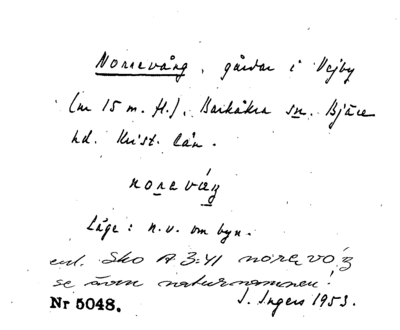 Norrevång, gårdar i Vejby
(nr 15 m. fl.), Barkåkra sn. Bjäre
hd. Krist. län.
norevåŋ
Läge: n.v. om byn.
enl. Sko A 3:41 norevóŋ
se även naturnamnen!
Nr 5048. J. Ingers 1953.